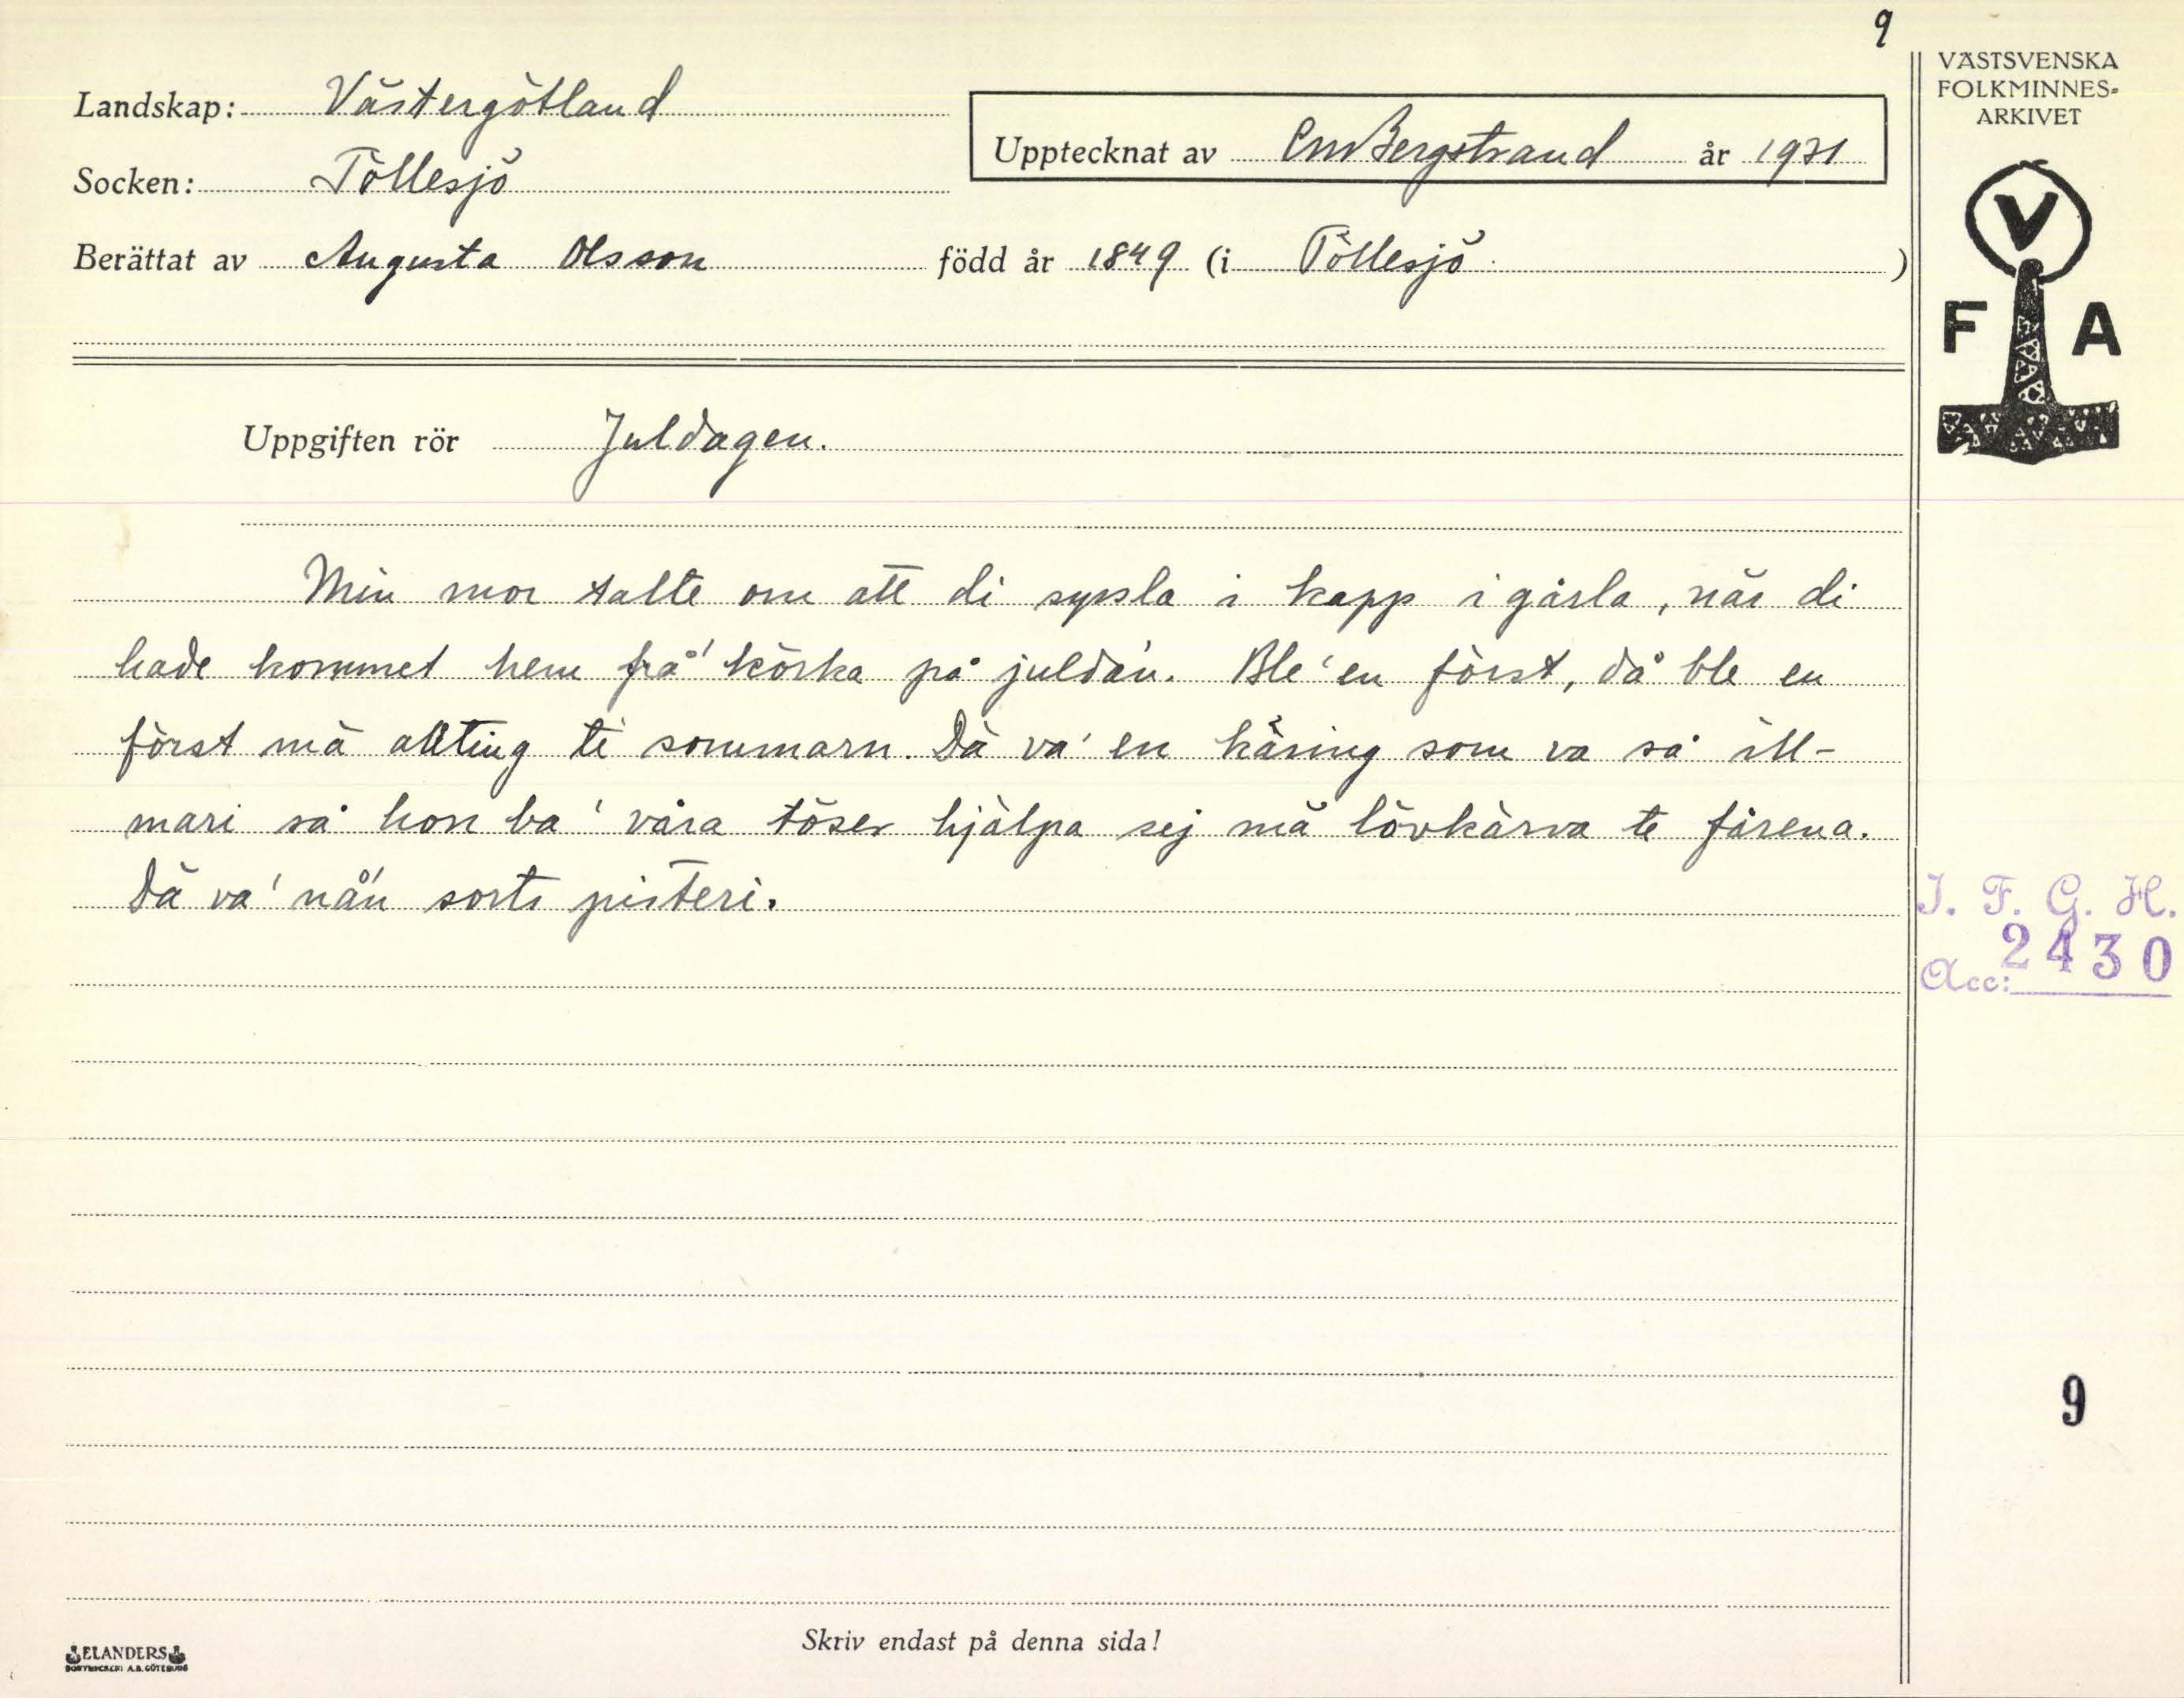 9
VÄSTSVENSKA
FOLKMINNES-
ARKIVET
Landskap: Västergötland
Upptecknat av CmBergstrand år 1931
Socken: Töllesjö
Berättat av Augusta Olsson född år 1849 (i Töllesjö.)
V
F A
Uppgiften rör Juldagen.
Min mor talte om att di syssla i kapp i gårla, när di
hade kommet hem frå' körka på julda'n. Ble' en först, då ble en
först mä allting te sommarn. Dä va' en käring som va så ill-
mari så hon ba' våra töser hjälpa sej mä lövkärva te fårena.
Dä va' nå'n sorts pisteri.
I. F. G. H.
Acc: 2430
9
Skriv endast på denna sida!
ELANDERS
BOKTRYCKERI A.B. GÖTEBORG